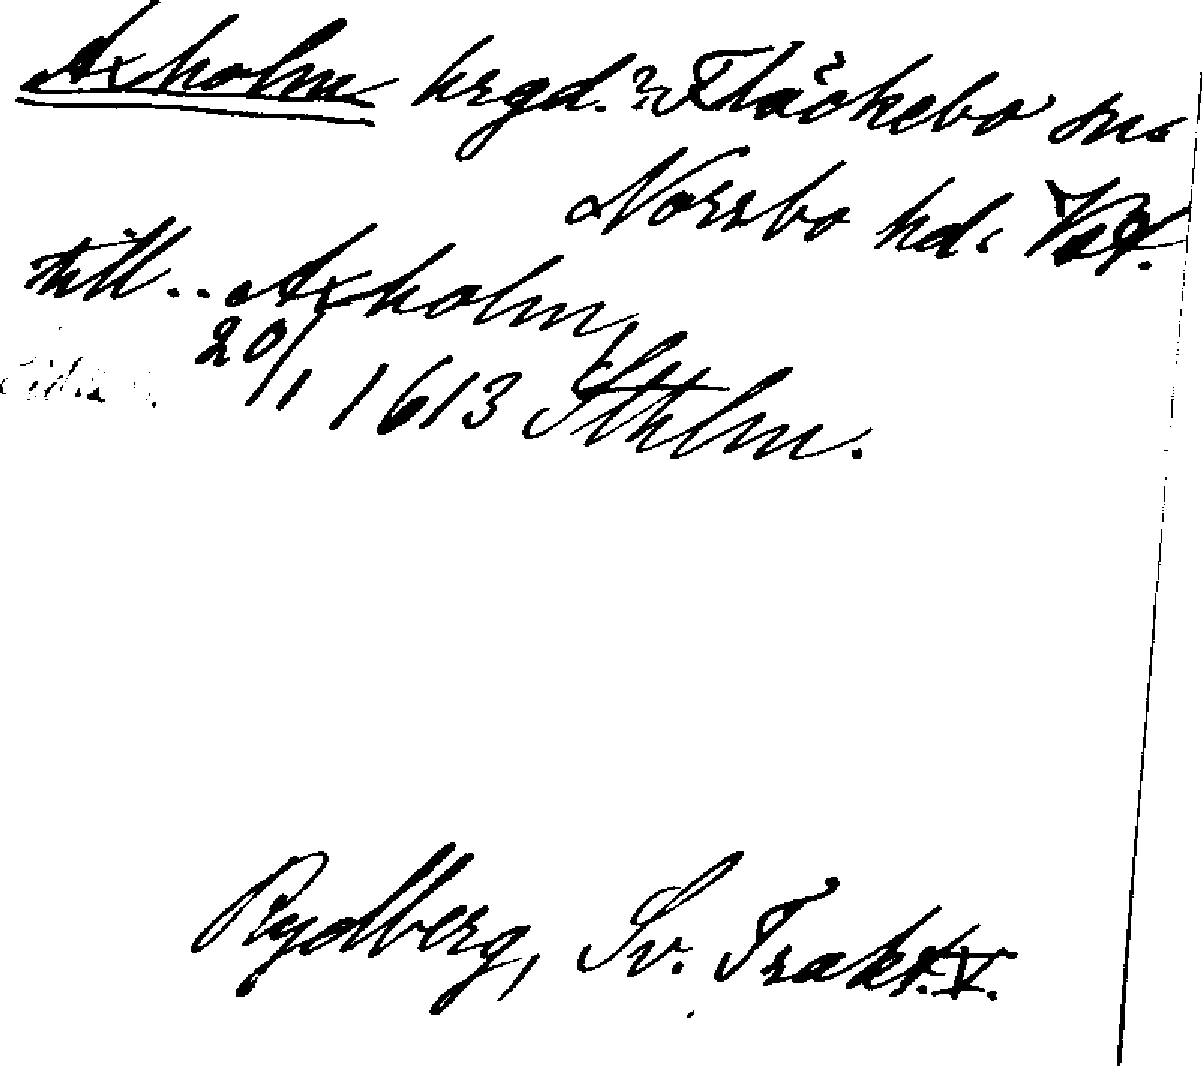 Axholm hrgd.? Fläckebo sn.
Norrbo hd. Vstm.
till.. Axholm,
20/1 1613 Sthlm.
Rydberg, Sv. Trakt. V.